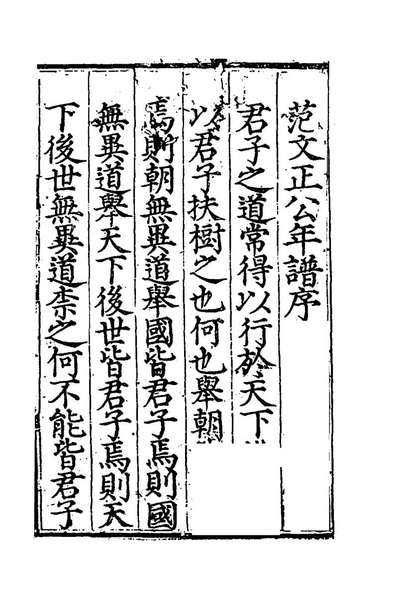 范文正公年譜序
君子之道常得以行於天下
以君子扶樹之也何也舉朝
焉則朝無異道舉國皆君子焉則國
無異道舉天下後世皆君子焉則天
下後世無異道柰之何不能皆君子